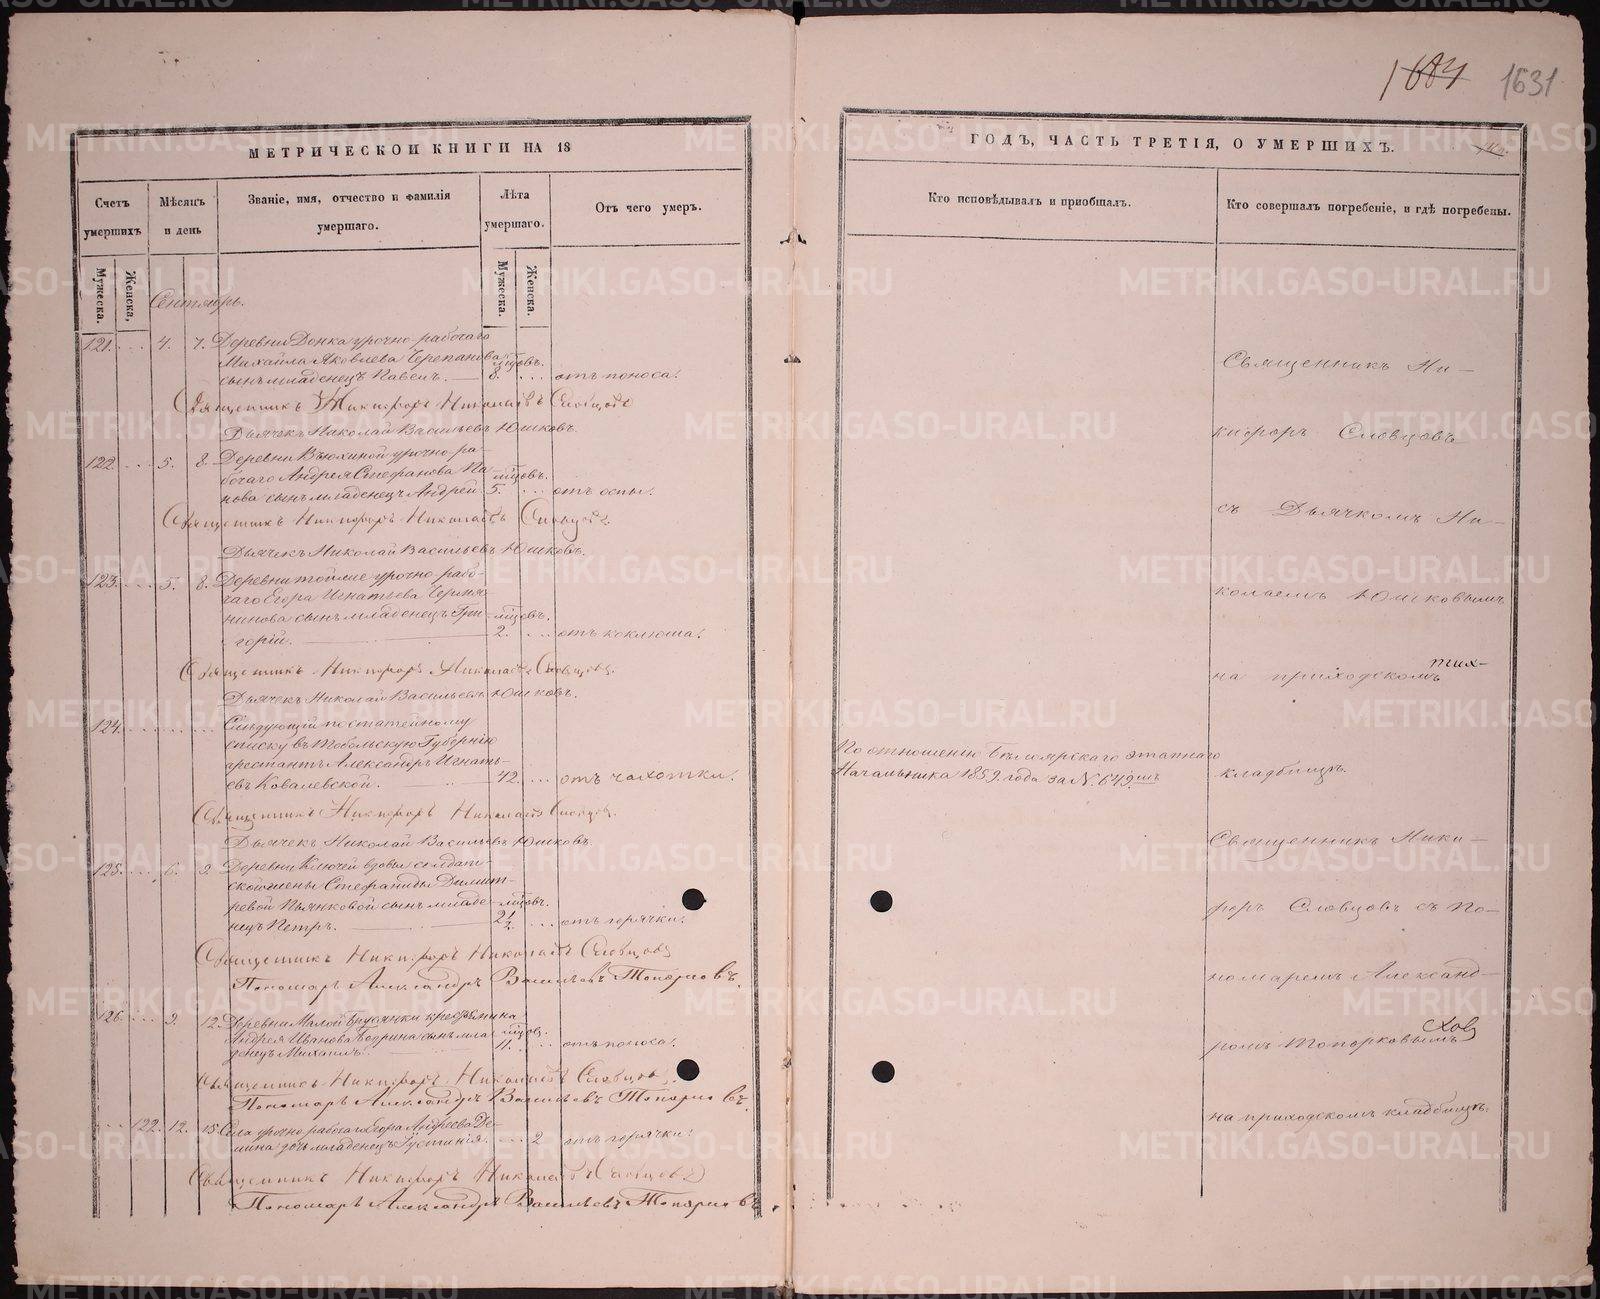 1631
МЕТРИЧЕСКОЙ КНИГИ НА 18
ГОДЪ, ЧАСТЬ ТРЕТІЯ, О УМЕРШИХЪ.
Счетъ умершихъ
Мѣсяцъ и день
Званіе, имя, отчество и фамилія умершаго.
Лѣта умершаго.
Отъ чего умеръ.
Кто исповѣдывалъ и пріобщалъ.
Кто совершалъ погребеніе, и гдѣ погребены.
Мужеска.
Женска,
Мужеска.
Женска.
Сентябрь.
121. 4. 7. Деревни Донка урочно-рабочаго
Михайла Яковлева Черепанова
сынъ младенецъ Павелъ. 8. отъ поноса.
Священникъ Никифоръ Николаевъ Словцовъ
Дьячекъ Николай Васильевъ Юшковъ.
122. 5. 8. Деревни Вьюхиной урочно-ра-
бочаго Андрея Стефанова Па- мѣсцовъ.
нова сынъ младенецъ Андрей 5. отъ оспы.
Священникъ Никифоръ Николаевъ Словцовъ
Дьячекъ Николай Васильевъ Юшковъ.
123. 5. 8. Деревни урочно-рабо-
чаго Егора Игнатьева
сынъ младенецъ Гри- мѣсцовъ.
горій. 2. отъ коклюша.
Священникъ Никифоръ Николаевъ Словцовъ
Дьячекъ Николай Васильевъ Юшковъ.
124. Слѣдующій по статейному
списку въ Тобольскую Губернію
арестантъ Александръ Игнать-
евъ Ковалевской. 42. отъ чахотки.
Священникъ Никифоръ Николаевъ Словцовъ
Дьячекъ Николай Васильевъ Юшковъ.
125. 6. 9. Деревни Ключей вдовы солдат-
ской жены Стефаниды Димит-
ревой Пьянковой сынъ младе- мѣсцовъ.
нецъ Петръ. 2 1/2 отъ горячки.
Священникъ Никифоръ Николаевъ Словцовъ
Пономарь Александръ Васильевъ Топорковъ.
126. 9. 12. Деревни Малой Брусянки крестьянина
Андрея Иванова сынъ мла- мѣсцов.
денецъ Михаилъ. 11. отъ поноса.
Священникъ Никифоръ Николаевъ Словцовъ
Пономарь Александръ Васильевъ Топорковъ.
122. 12. 15. Села урочно-рабочаго Егора Андреева
дочь младенецъ Іустинія. 2 отъ горячки.
Священникъ Никифоръ Николаевъ Словцовъ
Пономарь Александръ Васильевъ Топорковъ
По отношенію Бѣлоярскаго этапнаго
Начальника 1859. года за N. 649.мъ
Священникъ Ни-
кифоръ Словцовъ
съ Дьячкомъ Ни-
колаемъ Юшковымъ
на приходскомъ
кладбищѣ.
Священникъ Ники-
форъ Словцовъ съ По-
номаремъ Александ-
ромъ Топорковымъ
на приходскомъ кладбищѣ.
METRIKI.GASO-URAL.RU